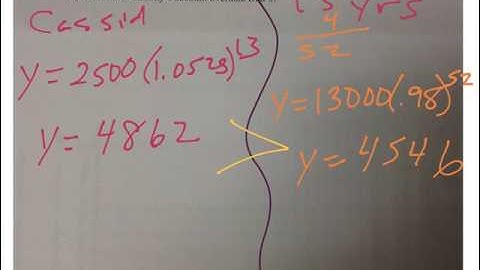 Cassid
y = 2500(1.0525)^13
y = 4862
13 yrs
4
52
y = 13000(.98)^52
>
y = 4546